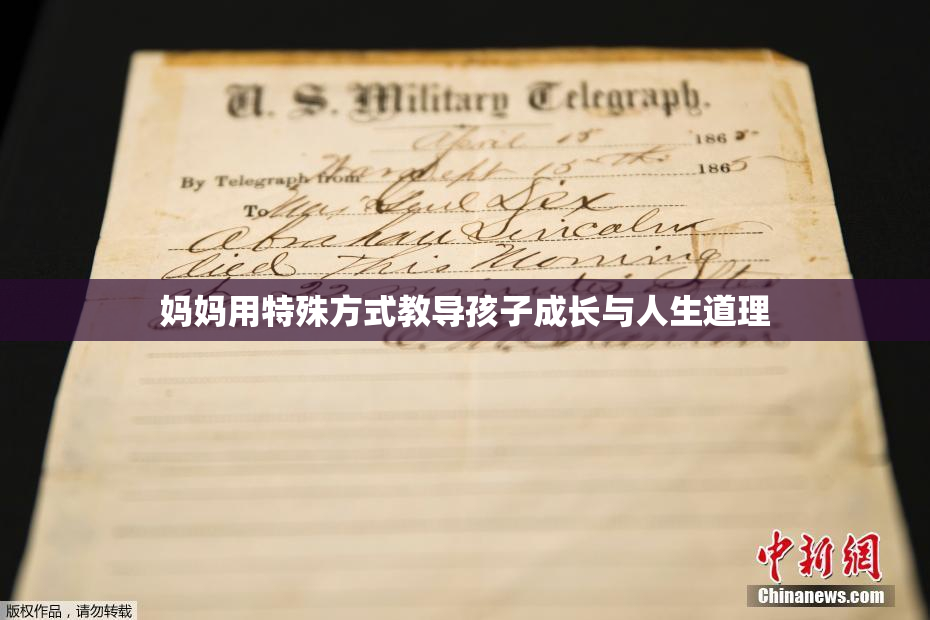 U. S. Military Telegraph.
April 15 1865
By Telegraph from War Dept 15th 1865
To Maj Genl Dix
Abraham Lincoln
died This Morning
at 22 minutes after
妈妈用特殊方式教导孩子成长与人生道理
E. M. Stanton
中新網
Chinanews.com
版权作品，请勿转载